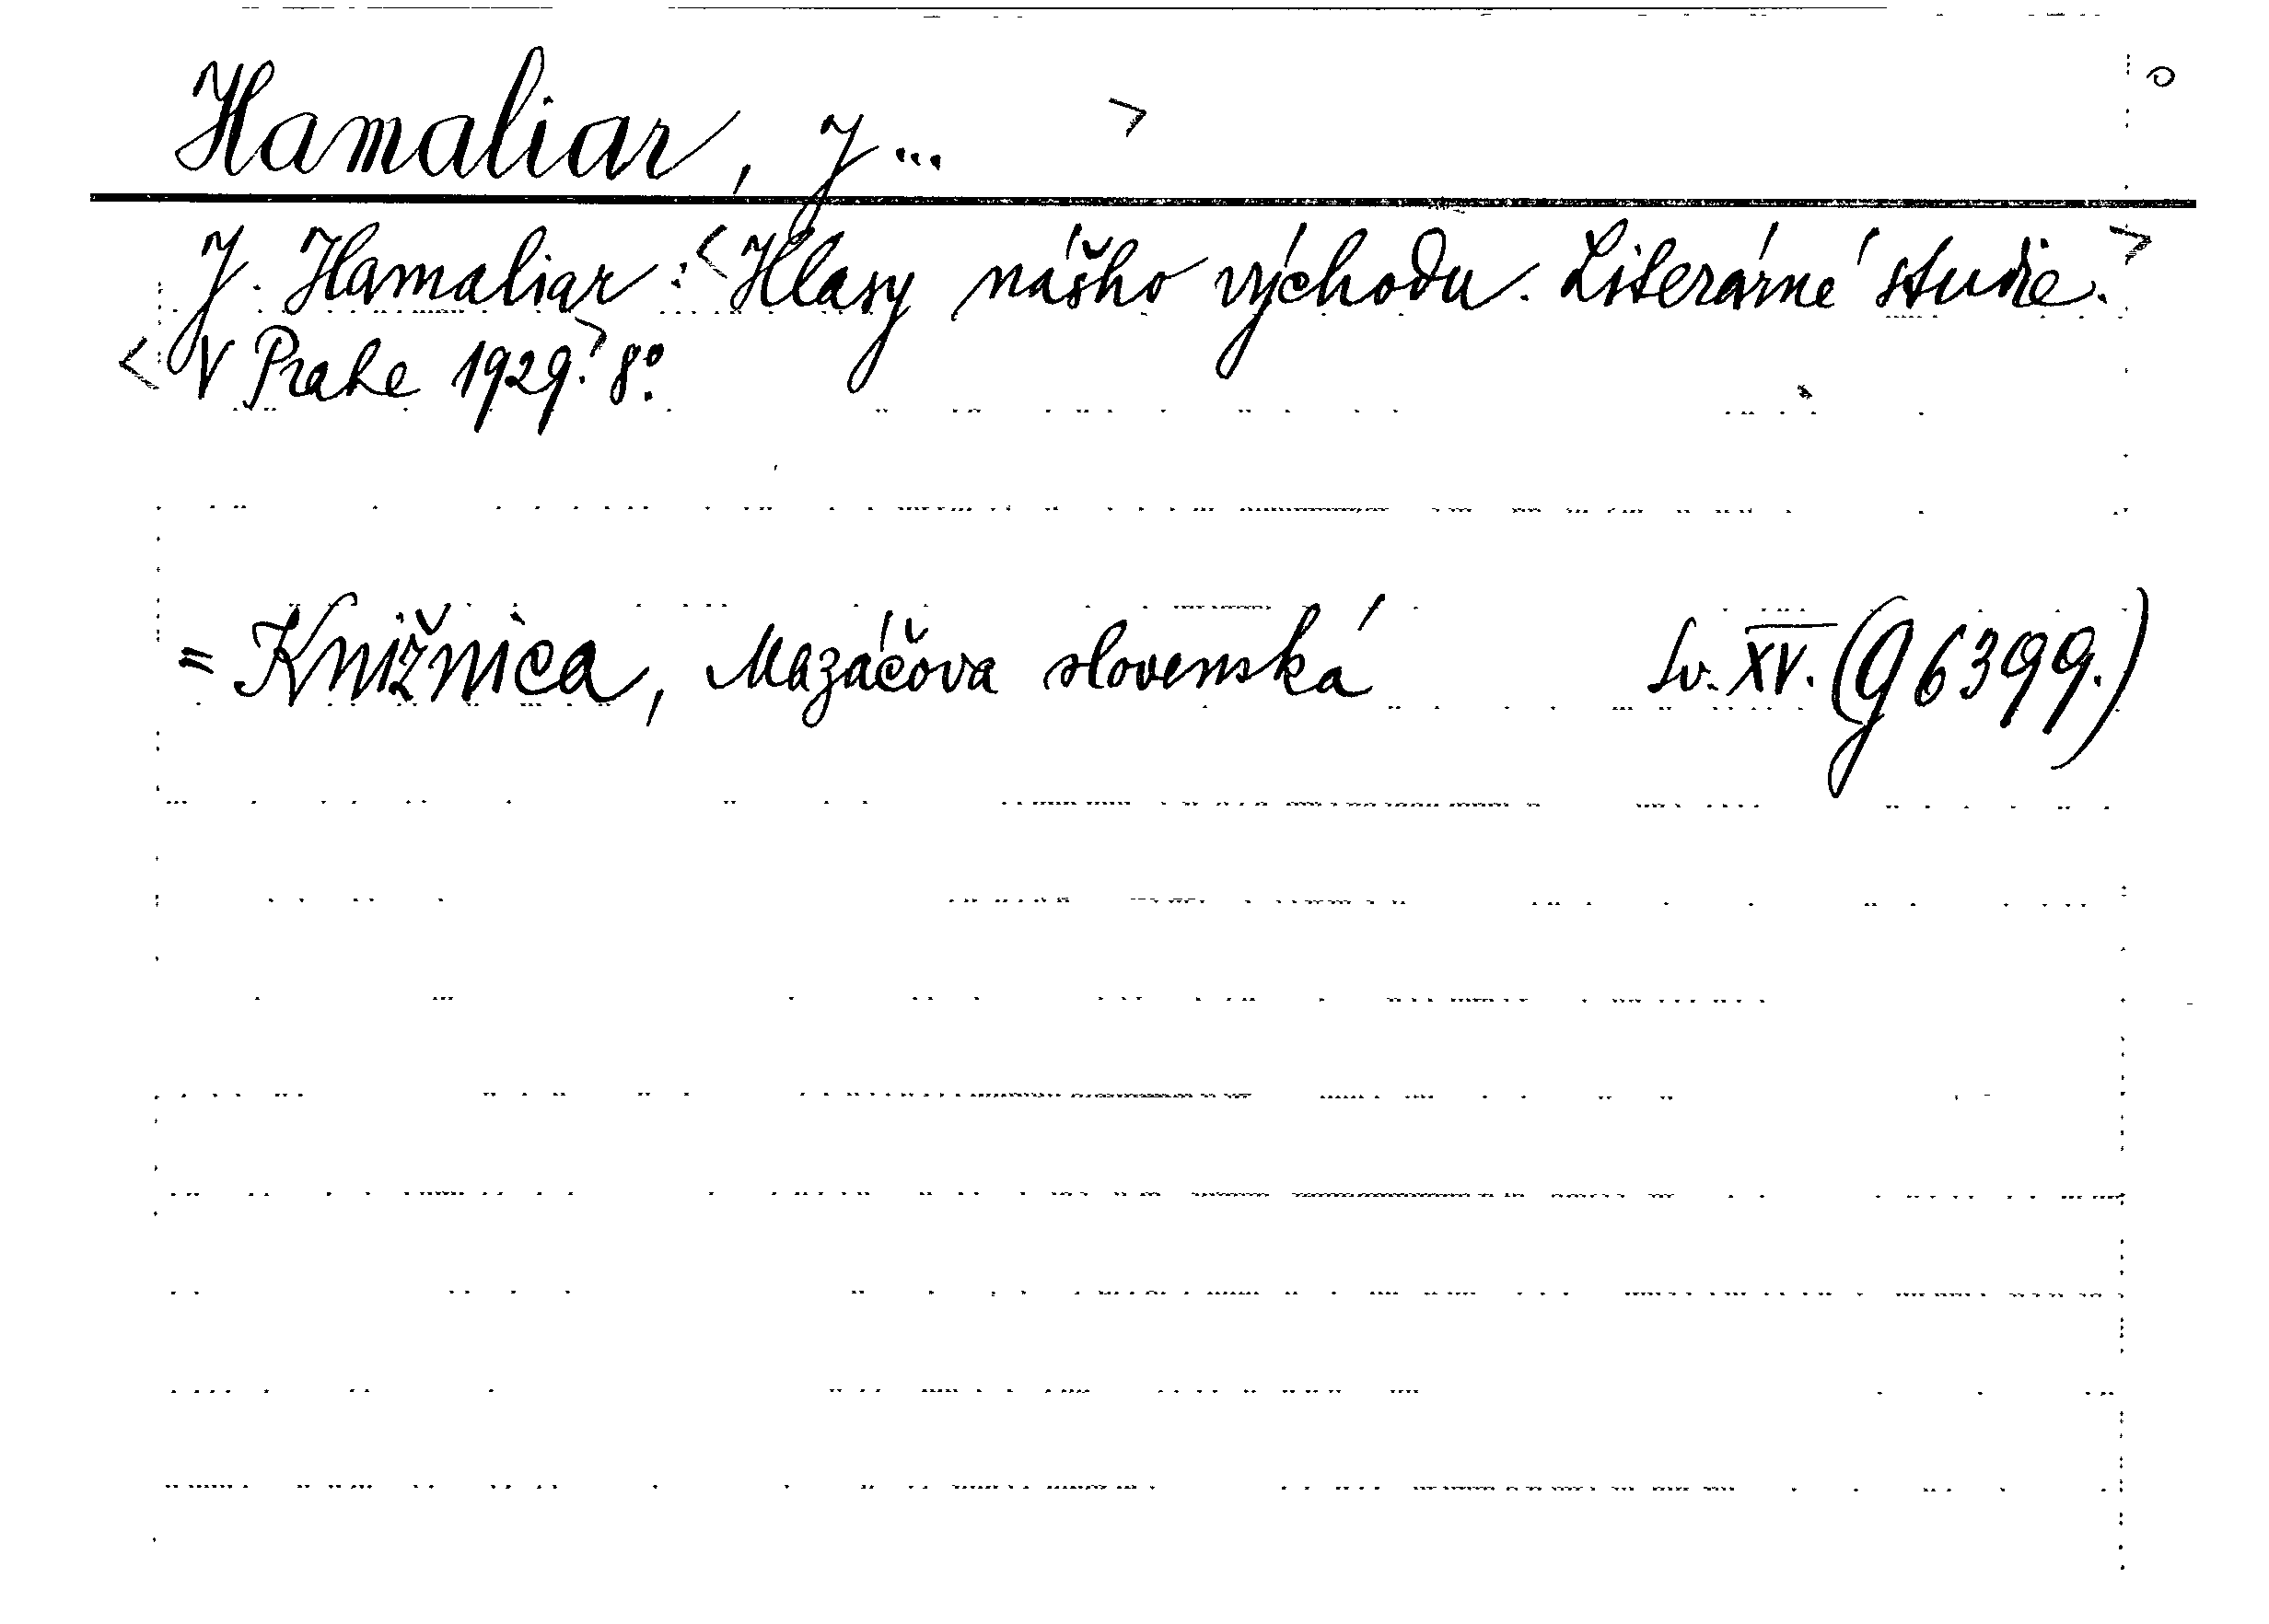 Hamaliar, J... >
J. Hamaliar: <Hlasy nášho východu. Literárné studie.>
<V Prahe 1929.> 8°.
= Knižnica, Mazáčova slovenská Sv. XV. (G 6399.)